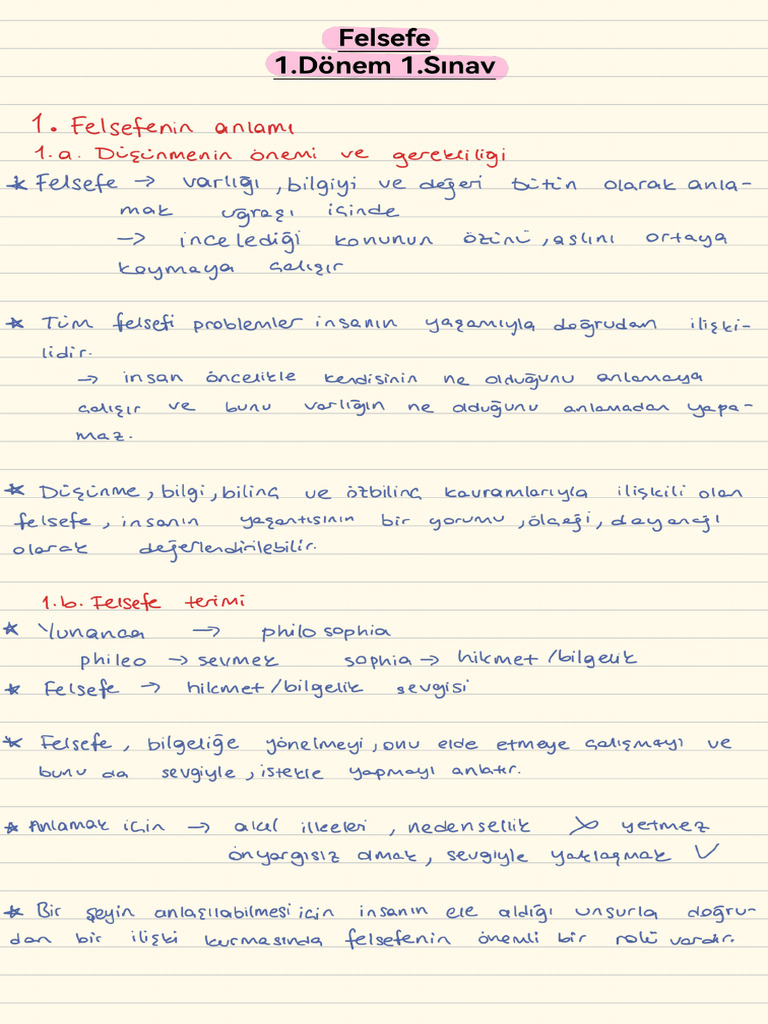 Felsefe
1.Dönem 1.Sınav
1. Felsefenin anlamı
1.a. Düşünmenin önemi ve gerekliliği
* Felsefe → varlığı, bilgiyi ve değeri bütün olarak anla-
mak uğraşı içinde
→ incelediği konunun özünü, aslını ortaya
koymaya çalışır
* Tüm felsefi problemler insanın yaşamıyla doğrudan ilişki-
lidir.
→ insan öncelikle kendisinin ne olduğunu anlamaya
çalışır ve bunu varlığın ne olduğunu anlamadan yapa-
maz.
* Düşünme, bilgi, bilinç ve özbilinç kavramlarıyla ilişkili olan
felsefe, insanın yaşantısının bir yorumu, ölçeği, dayanağı
olarak değerlendirilebilir.
1.b. Felsefe terimi
* Yunanca → philo sophia
phileo → sevmek sophia → hikmet/bilgelik
* Felsefe → hikmet/bilgelik sevgisi
* Felsefe, bilgeliğe yönelmeyi, onu elde etmeye çalışmayı ve
bunu da sevgiyle, istekle yapmayı anlatır.
* Anlamak için → akıl ilkeleri, nedensellik ✗ yetmez
önyargısız olmak, sevgiyle yaklaşmak ✓
* Bir şeyin anlaşılabilmesi için insanın ele aldığı unsurla doğru-
dan bir ilişki kurmasında felsefenin önemli bir rolü vardır.